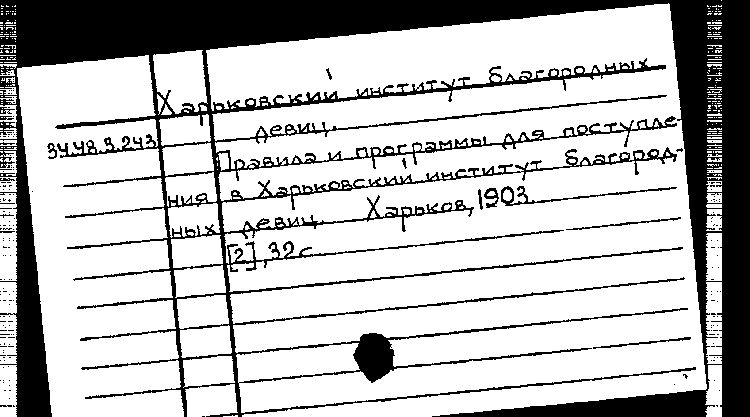 Харьковский институт благородных
девиц.
34.48.9.243
Правила и программы для поступле-
ния в Харьковский институт благород-
ных девиц. Харьков, 1903.
[2], 32 с